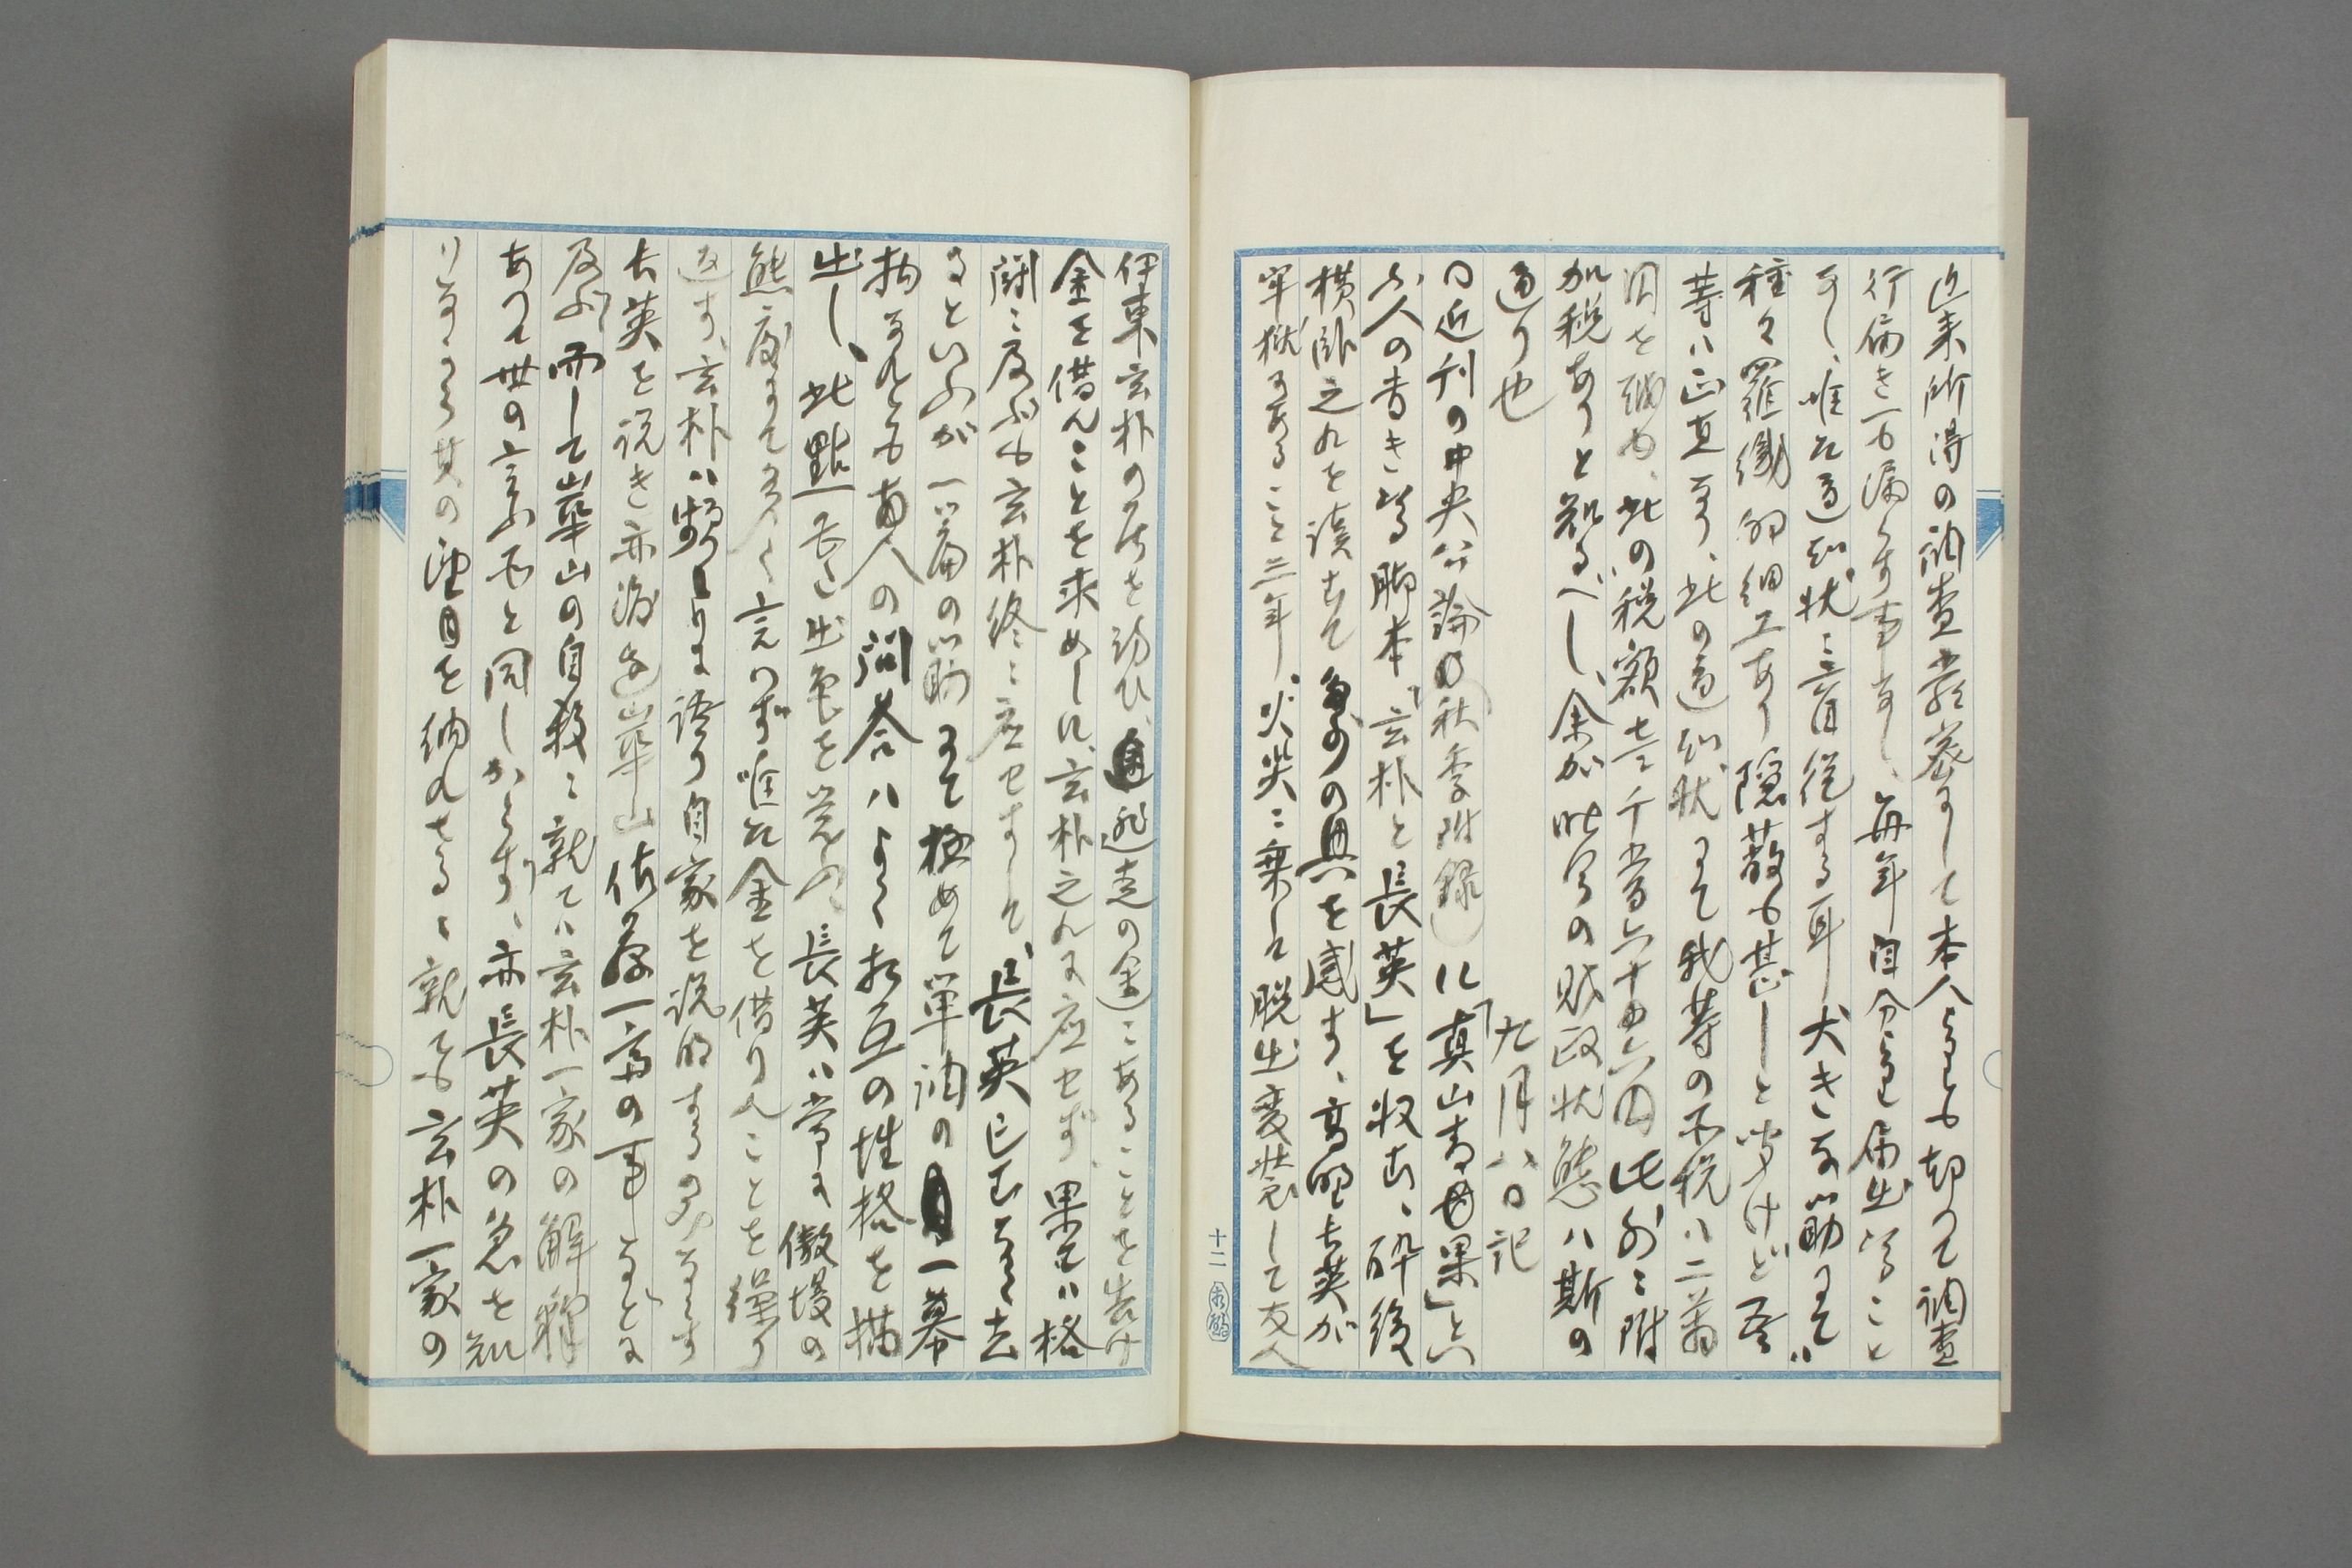 近来所得の調査峻厳にして本人よりも却つて調査
行届き一も漏らす事なし、毎年自分より届出ること
なし、唯だ通知状に盲従する耳 大きな御助にて
種々羅織的細工あり 隠蔽も甚しと聞けど吾
等ハ正直なり、此の通知状にて我等の所税ハ二万
円を納め、此の税額壱千六十四円 此外に附
加税ありと知るべし、余が昨今の財政状態ハ斯の
通り也
九月八日記
〇近刊の中央公論の(秋季附録)に「真山青果」とい
ふ人の書きたる脚本「玄朴と長英」を収む、酔後
横臥之れを読むで多少の興を感ず、高野長英が
牢獄にあること三年、火災に乗じて脱出変装して友人
十二
伊東玄朴の所を訪ひ、逃走の途にあることを告げ
金を借んことを求めしに、玄朴之れに応ぜず、果てハ格
闘に及ぶも玄朴終に応ぜずして、長英已むなく去
るといふが一篇の筋にて極めて単調の一幕
物なれども両人の問答ハよく相互の性格を描
出し、此點一長之出色を覚ふ、長英ハ常に傲慢の
態度にて多く言ハず唯だ金を借りんことを繰り
返す、玄朴ハ頻りに語り自家を説明するのみならず
長英を説き亦渡辺崋山 佐藤一斎の事などに
及ぶ、而して崋山の自殺に就てハ玄朴一家の解釈
ありて世の言ふ所と同じからず、亦長英の急を知
りながら其の望を納れざるに就ても玄朴一家の